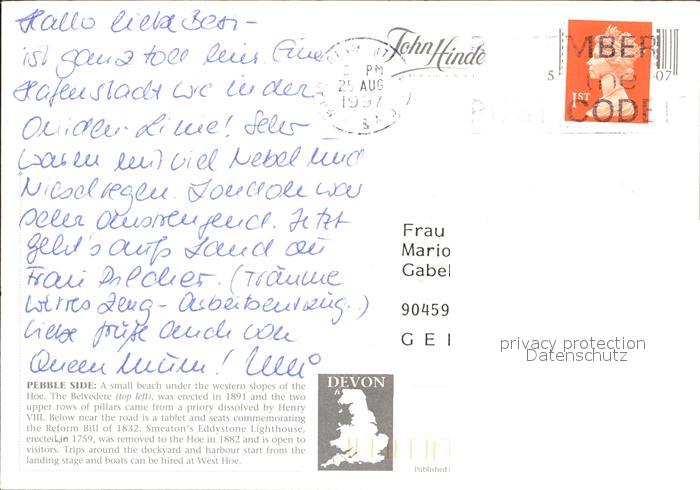 Hallo liebe
ist ganz toll hier. Eine
Hafenstadt wie in der
Onedin-Linie! Sehr
warm mit viel Nebel und
Nieselregen. London war
sehr anstrengend. Jetzt
geht's aufs Land zu
Frau Pilcher. (Träume
wirres Zeug - Arbeitsentzug..)
Liebe Grüße auch von
Queen Mum!
John Hinde
PM
29 AUG
1997
MBER
the
CODE
1ST
5
07
Frau
Mario
Gabel
90459
GE
privacy protection
Datenschutz
PEBBLE SIDE: A small beach under the western slopes of the
Hoe. The Belvedere (top left), was erected in 1891 and the two
upper rows of pillars came from a priory dissolved by Henry
VIII. Below near the road is a tablet and seats commemorating
the Reform Bill of 1832. Smeaton's Eddystone Lighthouse,
erected in 1759, was removed to the Hoe in 1882 and is open to
visitors. Trips around the dockyard and harbour start from the
landing stage and boats can be hired at West Hoe.
DEVON
Published